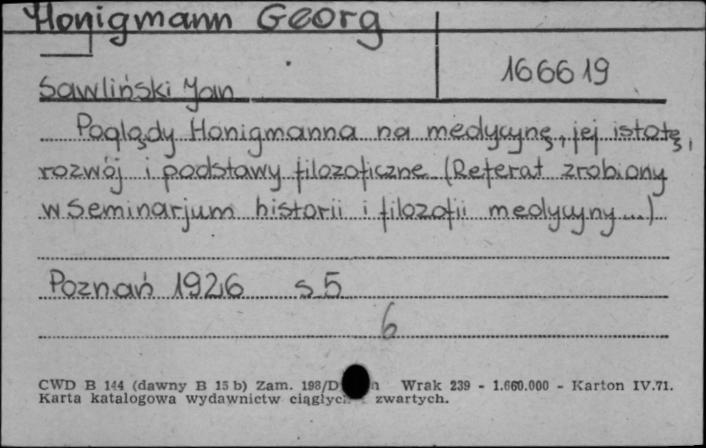 Honigmann Georg
166619
Sawliński Jan
Poglądy Honigmanna na medycynę, jej istotę,
rozwój i podstawy filozoficzne (Referat zrobiony
w seminarjum historii i filozofii medycyny...)
Poznań 1926 s 5
6
CWD B 144 (dawny B 15 b) Zam. 198/D Wrak 239 - 1.660.000 - Karton IV.71.
Karta katalogowa wydawnictw zwartych.